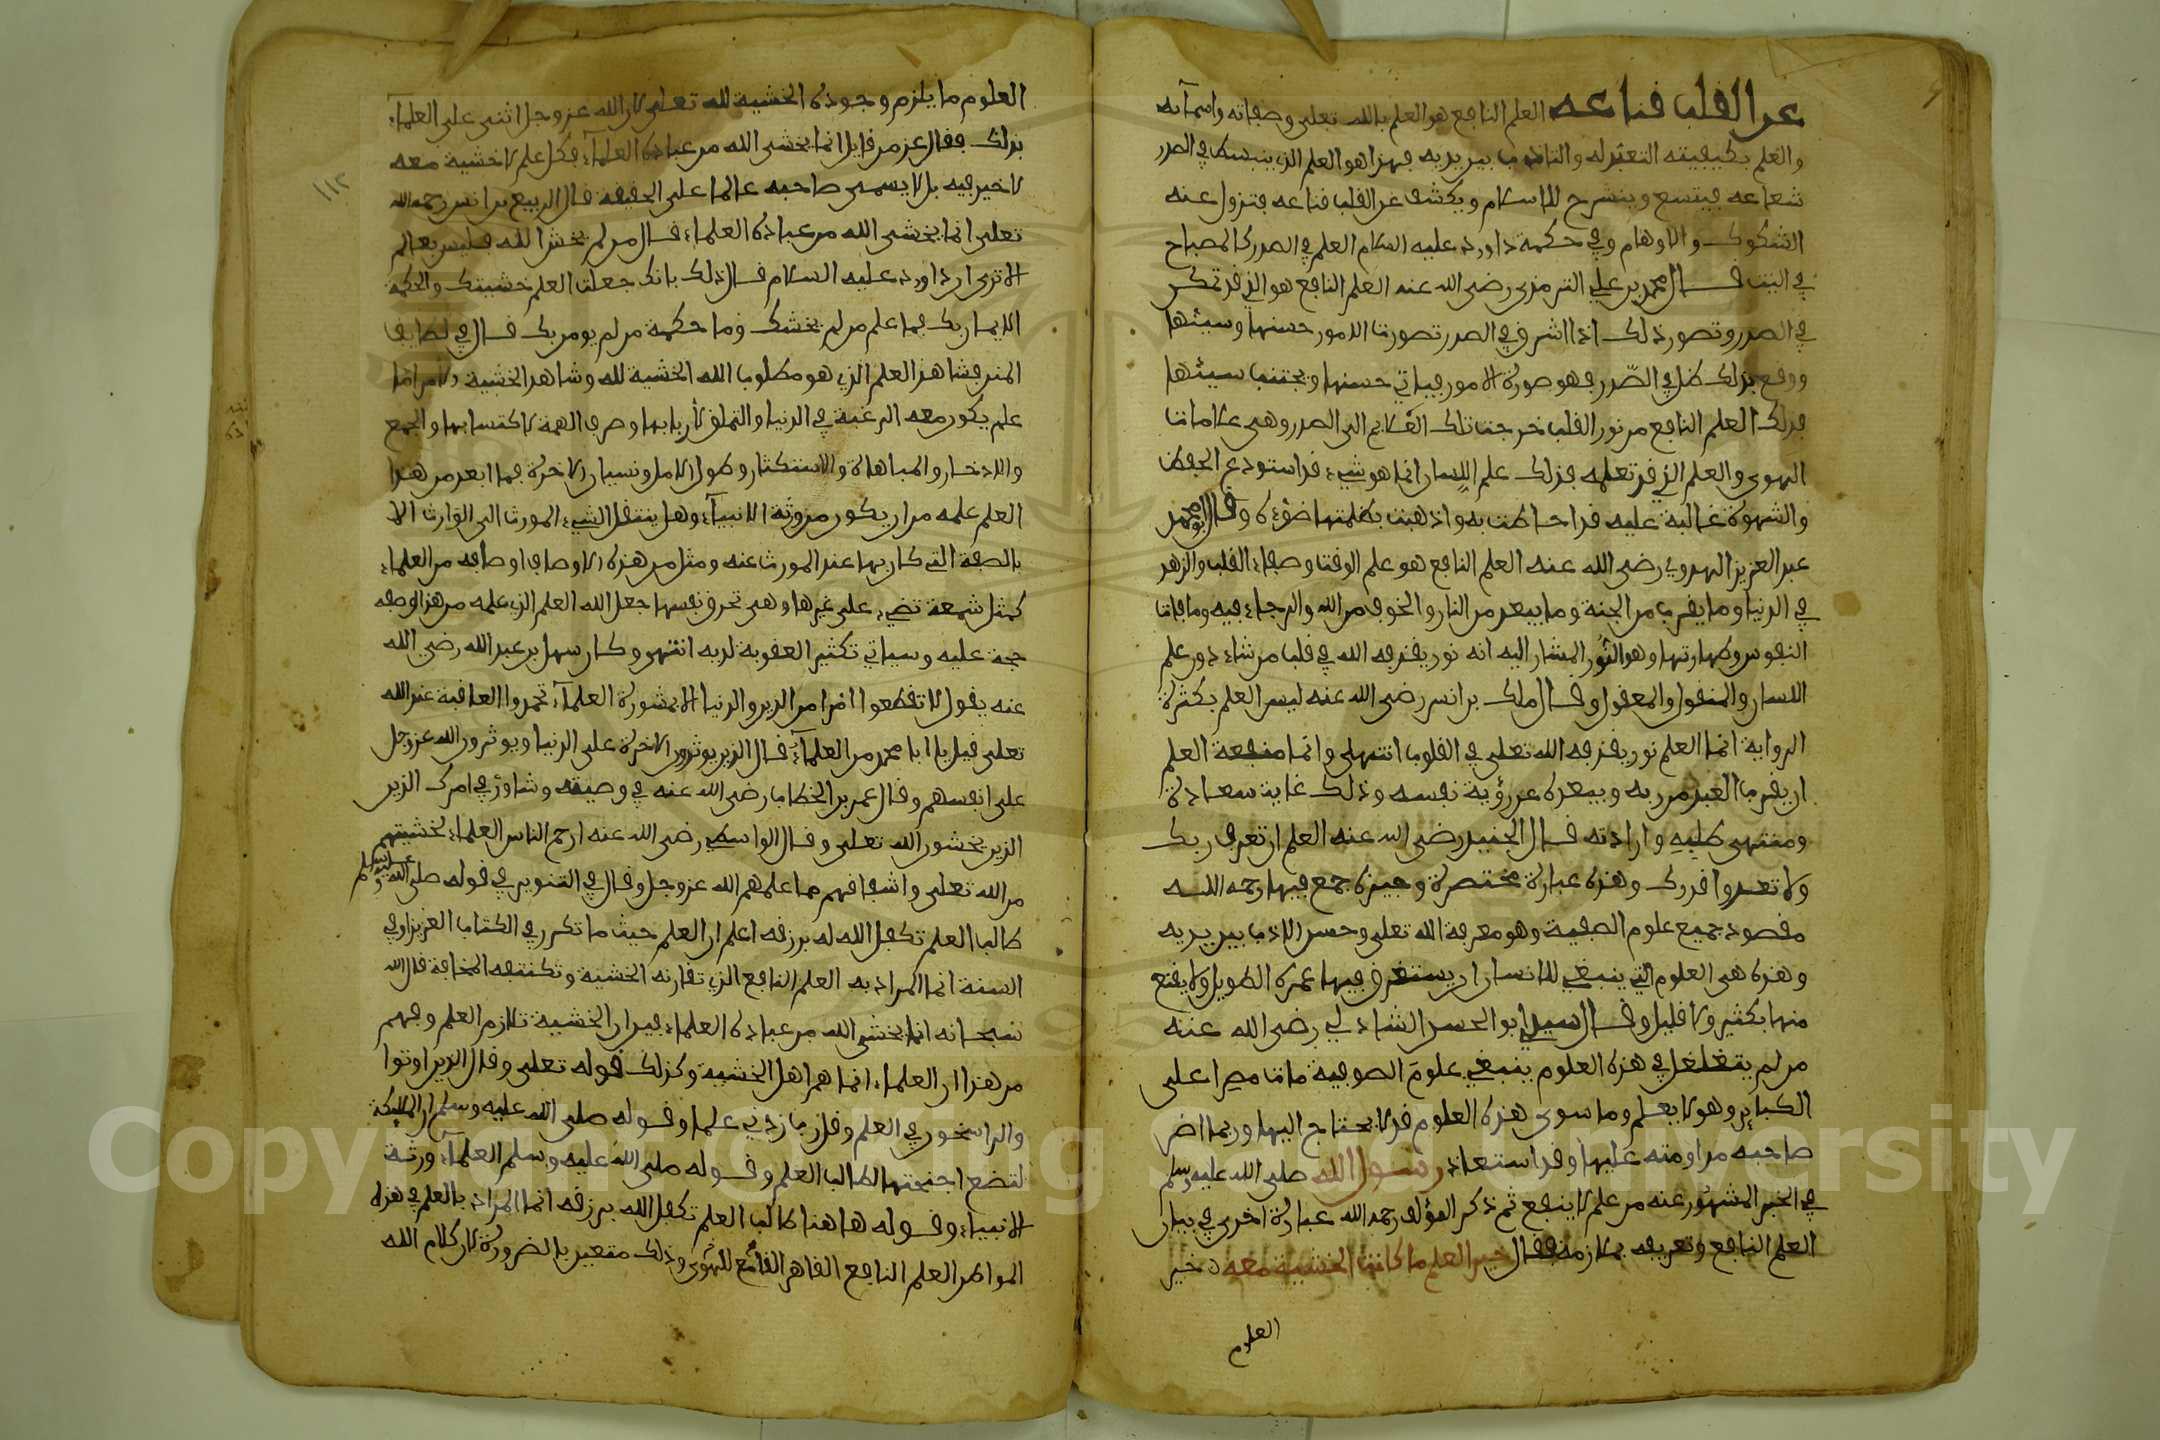 عن القلب قناعه العلم النافع هو العلم بالله تعلى وصفاته واسمآئه
والعلم بكيفيته التعبد له والتادب بين يديه فهذا هو العلم الذي ينبسط في الصدر
شعاعه فيتسع وينشرح للاسلام ويكشف عن القلب قناعه فتزول عنه
الشكوك والاوهام وفي حكمة داوود عليه السلام العلم في الصدر كالمصباح
في البيت قال محمد بن علي الترمذي رضي الله عنه العلم النافع هو الذي قد تمكن
في الصدر وتصور ذلك اذا اشرق في الصدر تصورت الامور حسنها وسيئها
ووقع بذلك ظل في الصّدر فهو صورة الامور فياتي حسنها ويجتنب سيئها
فذلك العلم النافع من نور القلب خرجت تلك العلايم الى الصدر وهي علامات
الهوى والعلم الذي قد تعلمه فذلك علم اللسان انما هو شيء قد استودع الحفظ
والشهوة غالبة عليه قد احاطت به واذهبت بظلمتها ضوءه وقال ابو محمد
عبد العزيز المهدوي رضي الله عنه العلم النافع هو علم الوقت وصفاء القلب والزهد
في الدنيا وما يقرب من الجنة وما يبعد من النار والخوف من الله والرجاء فيه وءافات
النفوس وطهارتها وهو النّور المشار اليه انه نور يقذفه الله في قلب من شاء دون علم
اللسان والمنقول والمعقول وقال ملك بن انس رضي الله عنه ليس العلم بكثرة
الرواية انما العلم نور يقذفه الله تعلى في القلوب انتهى وانما منفعة العلم
ان يقرب العبد من ربه ويبعده عن رؤية نفسه وذلك غاية سعادة
ومنتهى طلبه وارادته قال الجنيد رضي الله عنه العلم ان تعرف ربك
ولا تعدوا قدرك وهذه عبارة مختصرة وجيزة جمع فيها رحمه اللـه
مقصود جميع علوم الصفية وهو معرفة الله تعلى وحسن الادب بين يديه
وهذه هي العلوم التي ينبغي للانسان ان يستغرق فيها عمره الطويل ولا يقنع
منها بكثير ولا قليل وقال سيدي ابو الحسن الشاذلي رضي الله عنه
من لم يتغلغل في هذه العلوم ينبغي علوم الصوفية مات مصرا على
الكباير وهو لا يعلم وما سوى هذه العلوم قد لا يحتاج اليها وربما اضر
صاحبه مداومته عليها وقد استعاذ رسول الله صلى الله عليه وسلم
في الخبر المشهور عنه من علم لا ينفع ثم ذكر المؤلف رحمه الله عبارة اخرى في بيان
العلم النافع وتعريفه بملازمته فقال خير العلم ما كانت الخشية معه خير
العلوم
العلوم ما يلزم وجوده الخشية لله تعلى لان الله عز وجل اثنى على العلمآء
بذلك فقال عز من قايل انما يخشى الله من عباده العلمآء فكل علم لا خشية معه
لا خير فيه بل لا يسمى صاحبه عالما على الحقيقة قال الربيع بن انس رحمه الله
تعلى انما يخشى الله من عباده العلماء قال من لم يخش الله فليس بعالم
الا ترى ان داوود عليه السلام قال ذلك بانك جعلت العلم خشيتك والحكمة
الايمان بك فما علم من لم يخشك وما حكمة من لم يومن بك قال في لطايف
المنن فشاهد العلم الذي هو مطلوب الله الخشية لله وشاهد الخشية
علم يكون معه الرغبة في الدنيا والتملق لأربابها وصرف الهمة لاكتسابها والجمع
والادخار والمباهاة والاستكثار وطول الامل ونسيان الاخرة فما ابعد من هذا
العلم علمه من ان يكون من ورثة الانبيآء وهل ينتقل الشيء المورث الى الوارث الا
بالصفة التي كان بها عند المورث عنه ومثل من هذه الاوصاف اوصافه من العلماء
كمثل شمعة تضيء على غيرها وهي تحرق نفسها جعل الله العلم الذي علمه من هذا وصفه
حجة عليه وسببا في تكثير العقوبة لديه انتهى وكان سهل بن عبد الله رضي الله
عنه يقول لا تقطعوا امرا من الدين والدنيا الا بمشورة العلمآء تحمدوا العاقبة عند الله
تعلى قيل يا ابا محمد من العلمآء قال الذين يوثرون الاخرة على الدنيا ويوثرون الله عز وجل
على انفسهم وقال عمر بن الخطاب رضي الله عنه في وصيته وشاور في امرك الذين
الذين يخشون الله تعلى وقال الواسطي رضي الله عنه ارحم الناس العلماء لخشيتهم
من الله تعلى واشفاقهم مما علمهم الله عز وجل وقال في التنوير في قوله صلى الله عليه وسلم
طالب العلم تكفل الله له برزقه اعلم ان العلم حيث ما تكرر في الكتاب العزيز او في
السنة انما المراد به العلم النافع الذي تقارنه الخشية وتكتنفه المخافة قال الله
سبحانه انما يخشى الله من عباده العلماء فبين ان الخشية تلازم العلم وفهم
من هذا ان العلماء انما هم اهل الخشية وكذلك قوله تعلى وقال الذين اوتوا
والراسخون في العلم وقل رب زدني علما وقوله صلى الله عليه وسلم ان المليكة
لتضع اجنحتها لطالب العلم وقوله صلى الله عليه وسلم العلمآء ورثة
الانبياء وقوله هاهنا طالب العلم تكفل الله برزقه انما المراد بالعلم في هذه
المواطن العلم النافع القاهر القامع للهوى وذلك متعين بالضرورة لان كلام الله
١١٢
Copyright © King Saud University